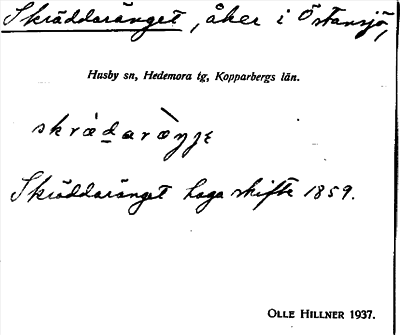 Skräddaränget, åker i Östansjö,
Husby sn, Hedemora tg, Kopparbergs län.
Skräddaränget laga skifte 1859.
OLLE HILLNER 1937.